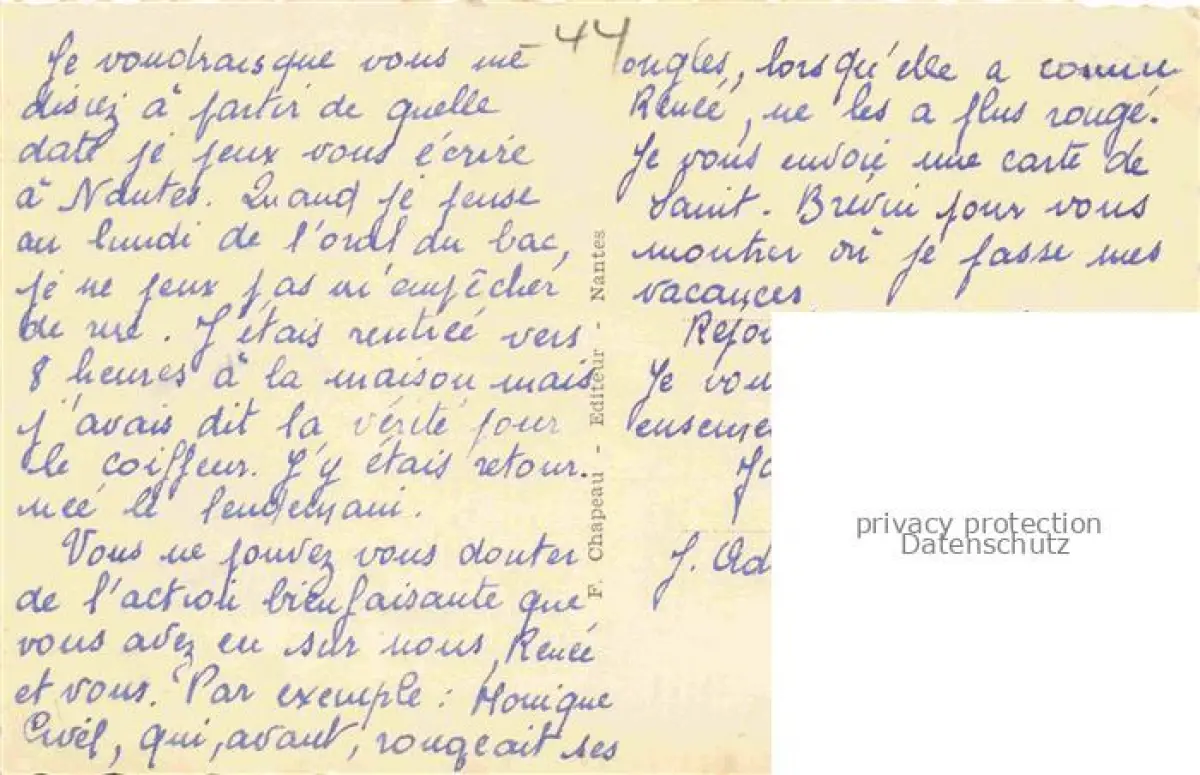 44
Je voudrais que vous me
disiez à partir de quelle
date je peux vous écrire
à Nantes. Quand je pense
au lundi de l'oral du bac,
je ne peux pas m'empêcher
de rire. J'étais rentrée vers
8 heures à la maison mais
j'avais dit la vérité pour
le coiffeur. J'y étais retour-
née le lendemain.
Vous ne pouvez vous douter
de l'action bienfaisante que
vous avez eu sur nous, Renée
et vous. Par exemple : Monique
qui, avant, rongeait ses
ongles, lorsqu'elle a connu
Renée, ne les a plus rongé.
Je vous envoie une carte de
Saint-Brévin pour vous
montrer où je passe mes
vacances
Je vou
J. Ad
F. Chapeau - Editeur - Nantes
privacy protection
Datenschutz